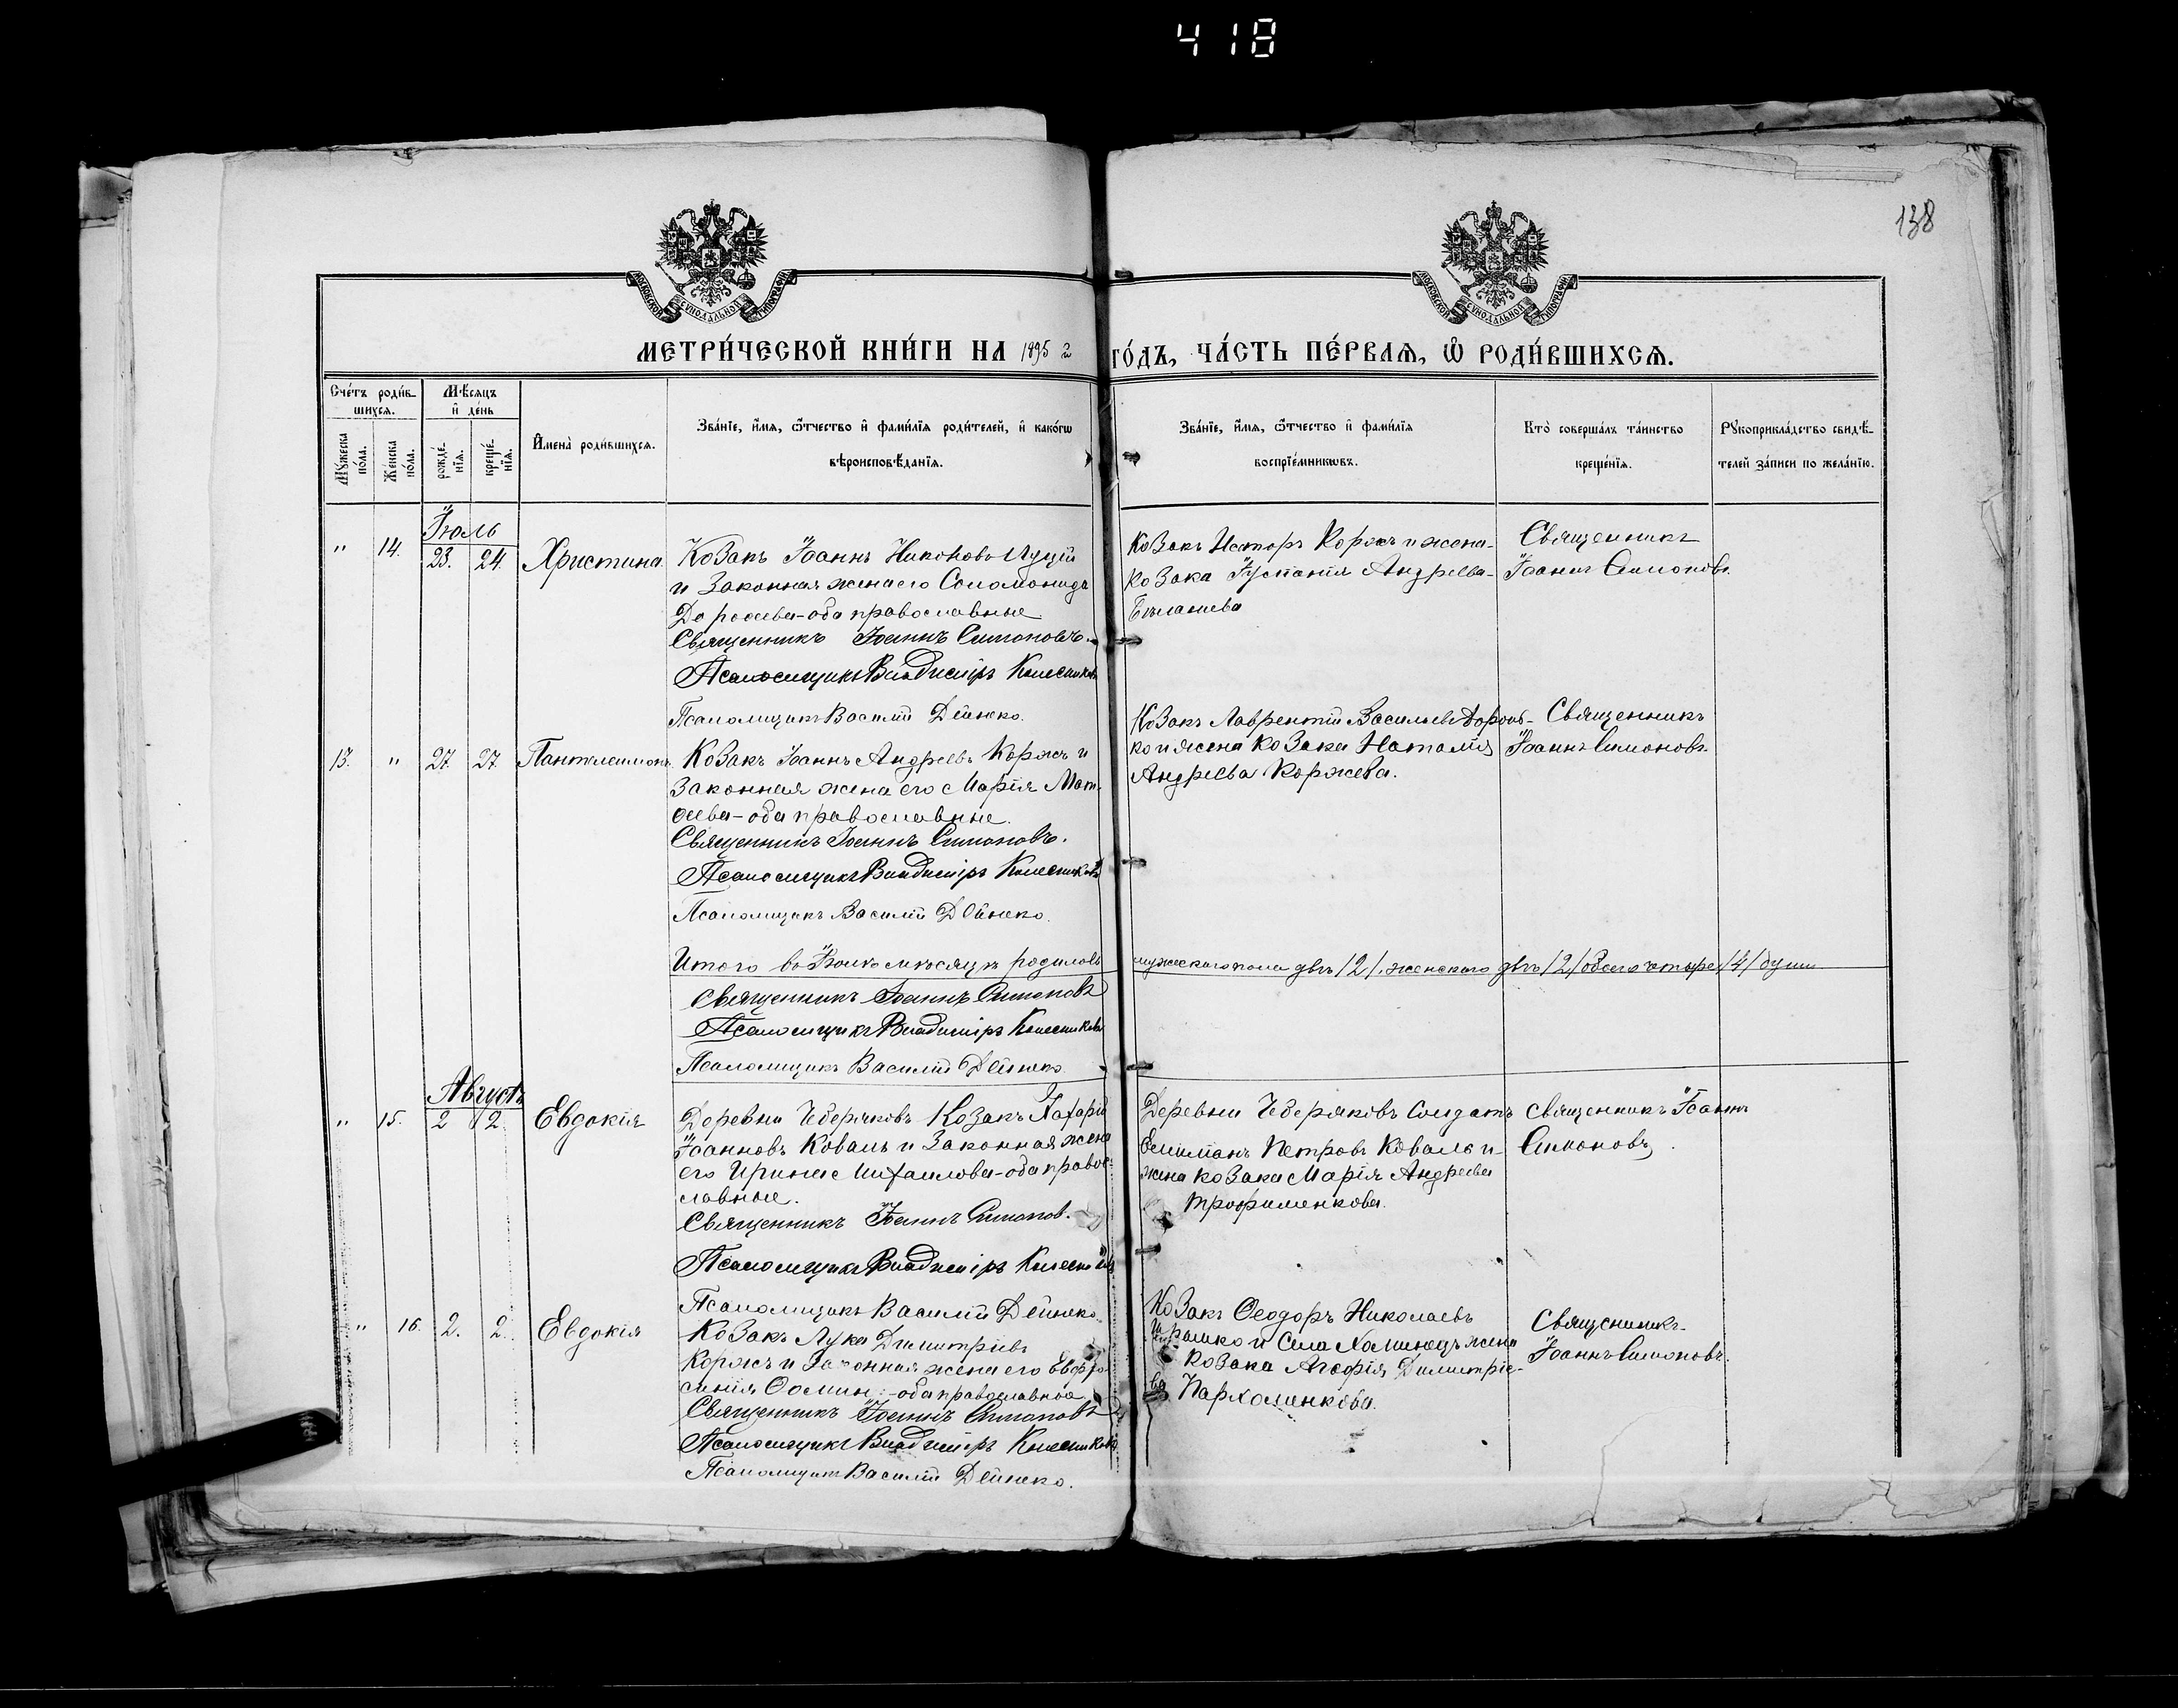 418
138
МОСКОВСКОЙ СУНОДАЛЬНОЙ ТИПОГРАФІИ
МОСКОВСКОЙ СУНОДАЛЬНОЙ ТИПОГРАФІИ
МЕТРИ́ЧЕСКОЙ КНИ́ГИ НА 1895 г ГО́ДЪ, ЧА́СТЬ ПЕ́РВАѦ, Ѡ҆ РОДИ́ВШИХСѦ.
Сче́тъ роди́в-
шихсѧ.
Мꙋ́жеска
по́ла.
Же́нска
по́ла.
Мѣ́сѧцъ
и҆ де́нь
рожде́-
нїѧ.
креще́-
нїѧ.
И҆мена̀ роди́вшихсѧ.
Зва́нїе, и҆́мѧ, ѻ҆́тчество и҆ фами́лїѧ роди́телей, и҆ како́гѡ
вѣроисповѣ́данїѧ.
Зва́нїе, и҆́мѧ, ѻ҆́тчество и҆ фами́лїѧ
воспрїе́мникѡвъ.
Кто̀ соверша́лъ та́инство
креще́нїѧ.
Рꙋкоприкла́дство свидѣ́-
телей за́писи по жела́нїю.
Іюль
" 14. 23. 24. Христина
Козакъ Іоаннъ Никоновъ Луцій
и Законная жена его Соломонида
Дороѳеева-оба православные
Священникъ Іоаннъ Симоновъ.
Псаломщикъ Владиміръ Колесниковъ
Псаломщикъ Василій Дейнеко.
Козакъ Несторъ Коржъ и жена-
козака Іустинія Андреева-
Священникъ
Іоаннъ Симоновъ.
13. " 27. 27. Пантелеимонъ
Козакъ Іоаннъ Андреевъ Коржъ и
Законная жена его Марія Мат-
ѳеева-оба православные.
Священникъ Іоаннъ Симоновъ.
Псаломщикъ Владиміръ Колесниковъ
Псаломщикъ Василій Дейнеко.
Козакъ Лаврентій Васильевъ
ко и жена козака Наталія
Андреева Коржева.
Священникъ
Іоаннъ Симоновъ.
Итого въ Іюлѣ мѣсяцѣ родилось мужескаго пола два /2/, женскаго два /2/ обоего четыре /4/ души
Священникъ Іоаннъ Симоновъ
Псаломщикъ Владиміръ Колесниковъ
Псаломщикъ Василій Дейнеко.
Августъ
" 15. 2 2 Евдокія
Деревни Чеберяковъ Козакъ Захарій
Іоанновъ Коваль и Законная жена
его Ирина Михаилова-оба право-
славные.
Священникъ Іоаннъ Симонов.
Псаломщикъ Владиміръ Колесниковъ
Псаломщикъ Василій Дейнеко.
Деревни Чеберяковъ Солдатъ
Петровъ Коваль и-
жена козака Марія Андреева
Трофименкова.
Священникъ Іоаннъ
Симоновъ.
" 16. 2. 2. Евдокія
Козакъ Лука Димитріевъ
Коржъ и Законная жена его Евфро-
синія Ѳомин.-оба православные
Священникъ Іоаннъ Симоновъ
Псаломщикъ Владиміръ Колесниковъ
Псаломщикъ Василій Дейнеко.
Козакъ Ѳеодоръ Николаевъ
и Села жена
козака Агафія Димитріе-
ва Пархоменкова.
Священникъ-
Іоаннъ Симоновъ.